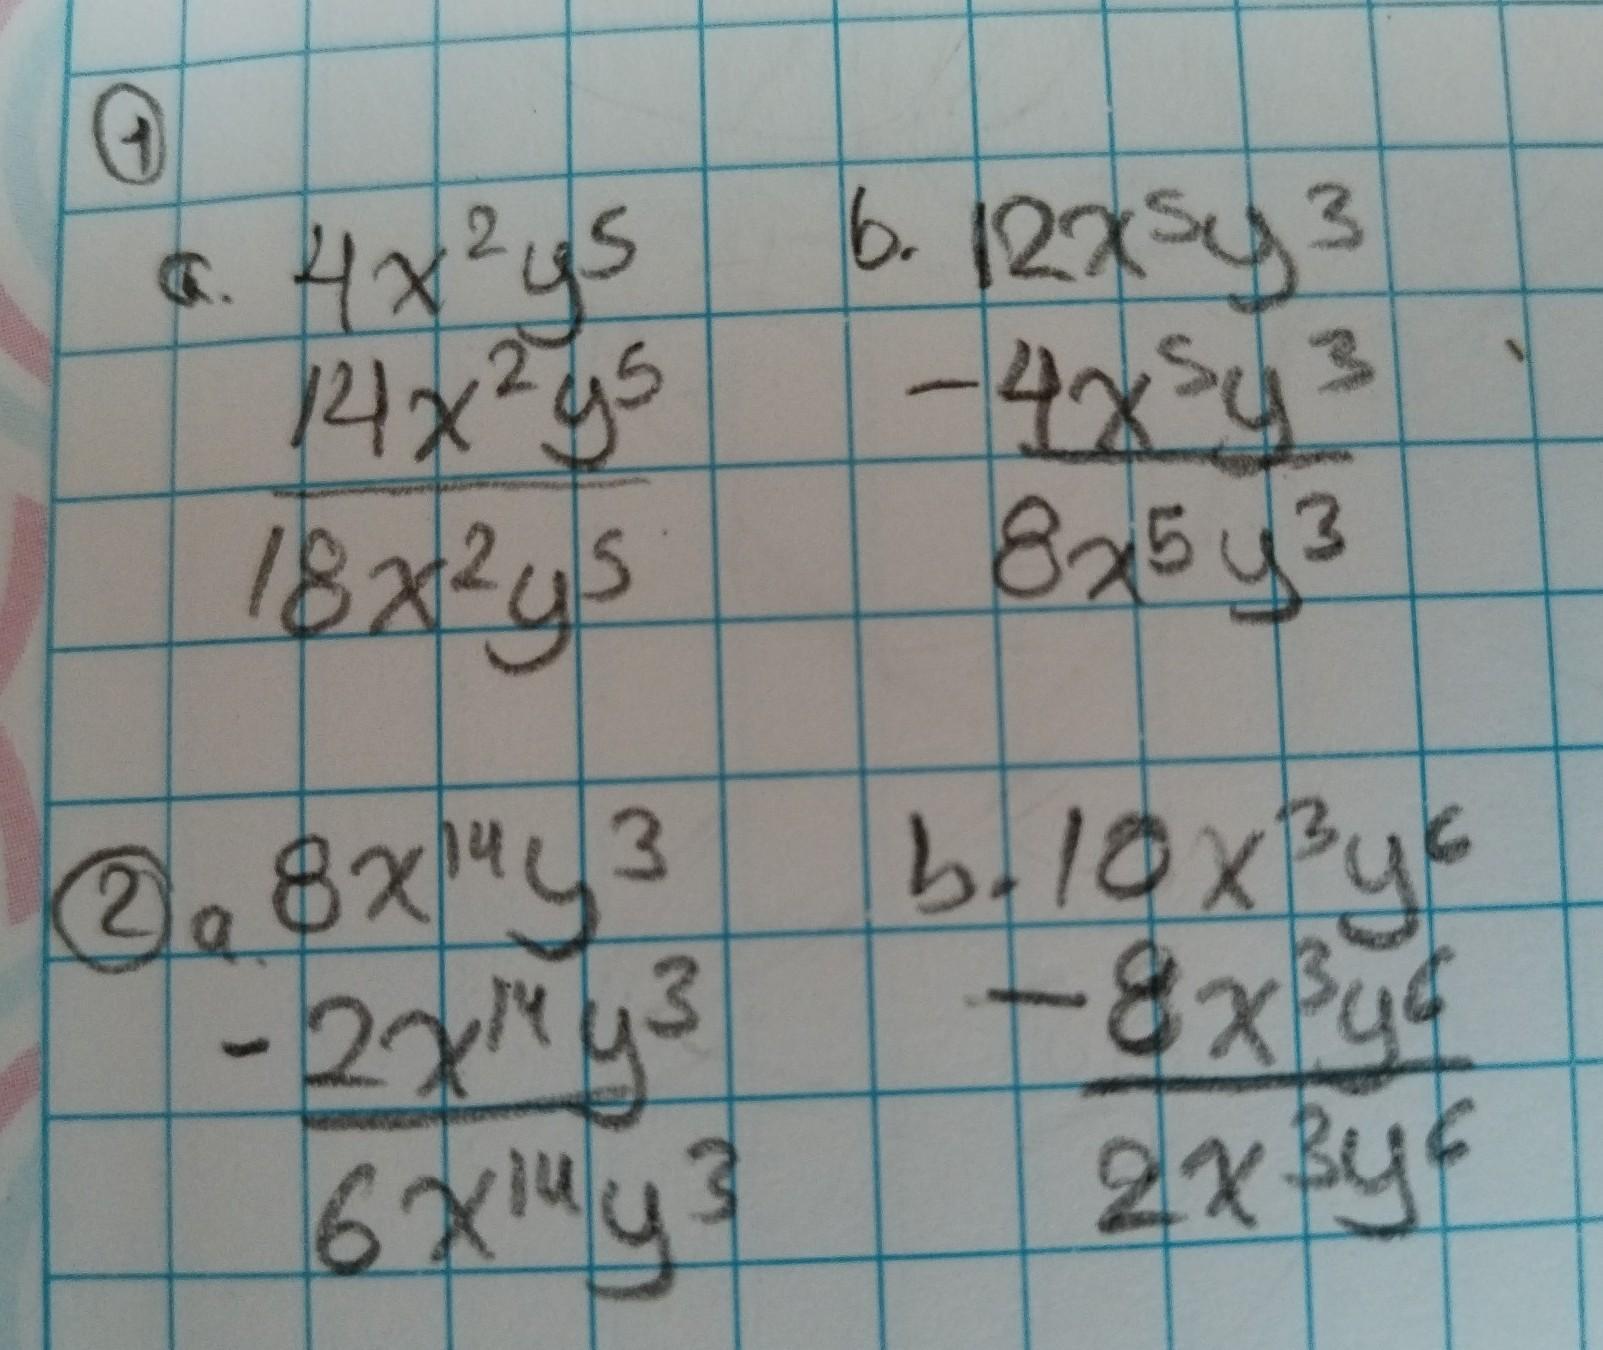 1
a. 4x²y⁵
14x²y⁵
18x²y⁵
b. 12x⁵y³
- 4x⁵y³
8x⁵y³
2 a. 8x¹⁴y³
- 2x¹⁴y³
6x¹⁴y³
b. 10x³y⁶
- 8x³y⁶
2x³y⁶